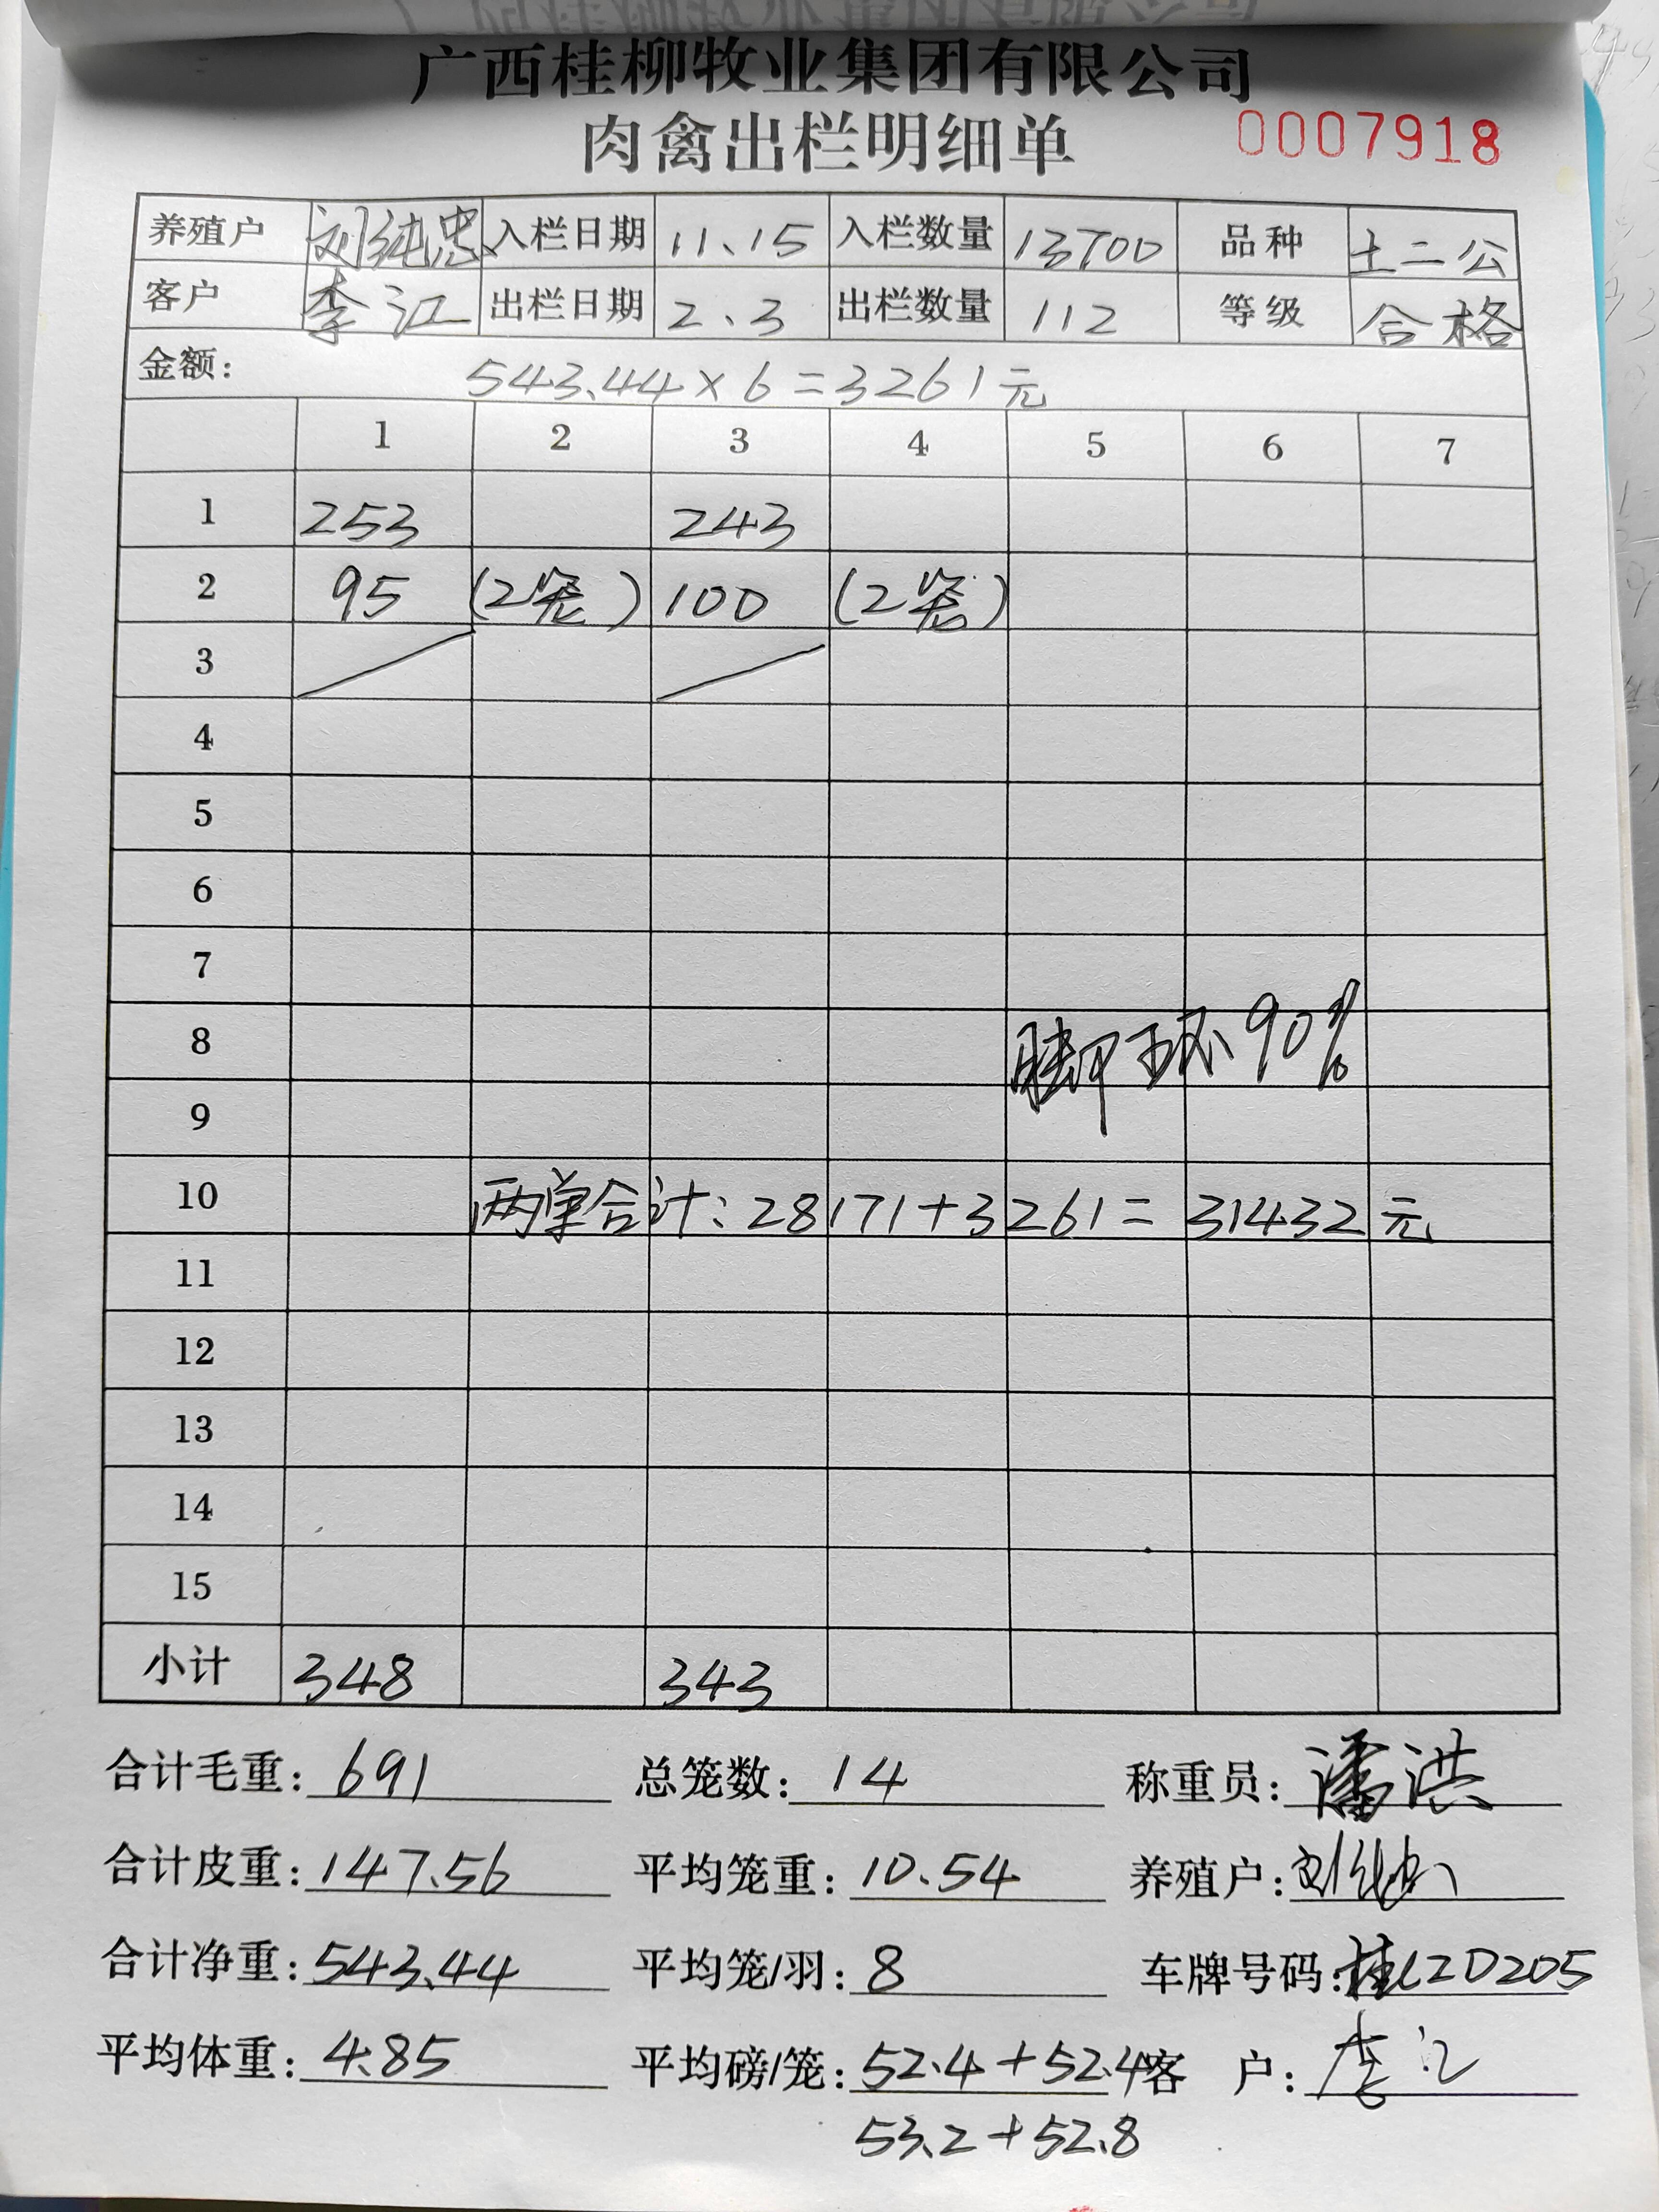 广西桂柳牧业集团有限公司
肉禽出栏明细单 0007918
养殖户 刘纯忠 入栏日期 11.15 入栏数量 13700 品种 土二公
客户 李江 出栏日期 2.3 出栏数量 112 等级 合格
金额: 543.44×6=3261元
1 2 3 4 5 6 7
1 253 243
2 95 (2笼) 100 (2笼)
3
4
5
6
7
8 脚环90%
9
10 两单合计:28171+3261=31432元
11
12
13
14
15
小计 348 343
合计毛重: 691 总笼数: 14 称重员: 潘洪
合计皮重: 147.56 平均笼重: 10.54 养殖户: 刘纯忠
合计净重: 543.44 平均笼/羽: 8 车牌号码: 桂CZD205
平均体重: 4.85 平均磅/笼: 52.4+52.4 客 户: 李江
53.2+52.8